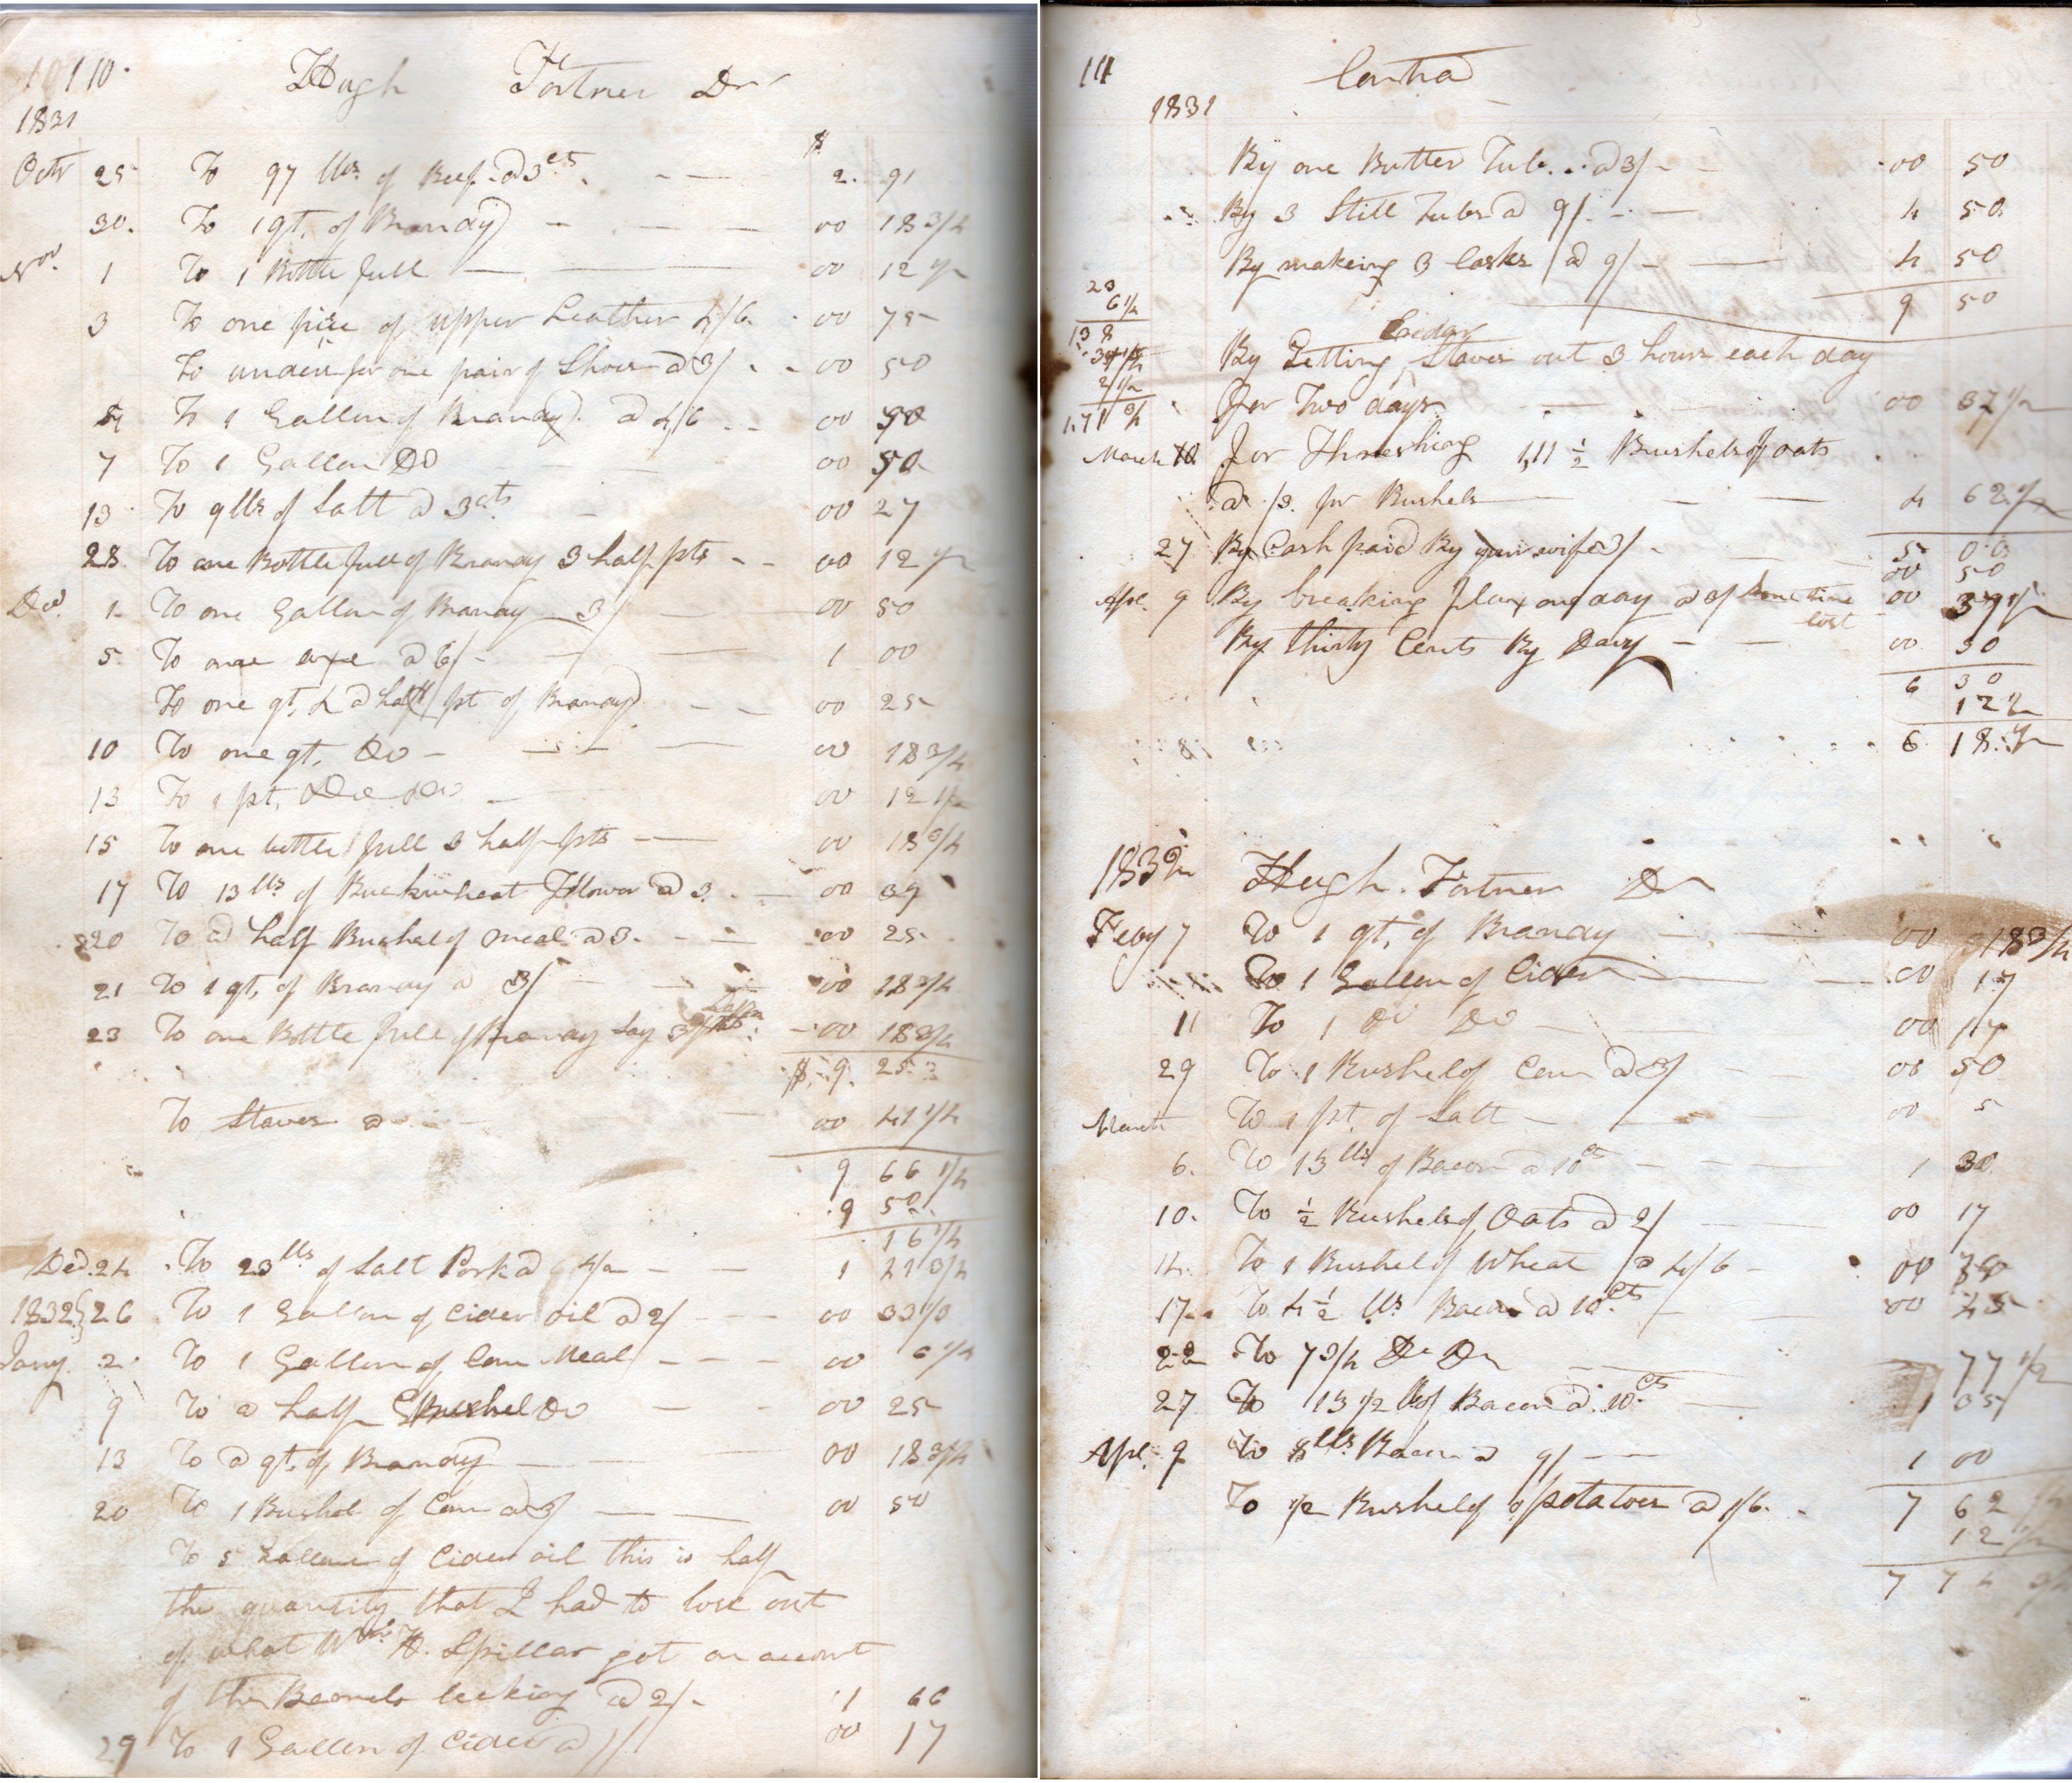 110.
Hugh Fortner Dr
1831
$
Octr 25 To 97 lbs. of Beef @ 3 cts. 2. 91
30. To 1 qt. of Brandy 00 18 3/4
Nov. 1 To 1 Bottle full 00 12 1/2
3 To one piece of upper Leather 4/6. 00 75
To under for one pair of Shoes @ 3/ 00 50
To 1 Gallon of Brandy @ 4/6 00 50
7 To 1 Gallon Do 00 50
13 To 9 lbs of Salt @ 3 cts 00 27
28. To one Bottle full of Brandy 3 half pts 00 12 1/2
1. To one Gallon of Brandy 3/ 00 50
5. To one axe @ 6/ 1 00
To one qt. & a half pt of Brandy 00 25
10 To one qt. Do 00 18 3/4
13 To 1 pt. Do Do 00 12 1/2
15 To one bottle full 3 half pts 00 18 3/4
17 To 13 lbs of Buckwheat Fllower @ 3. 00 39
20 To a half Bushel of meal @ 3. 00 25
21 To 1 qt. of Brandy @ 3/ 00 18 3/4
23 To one Bottle full of Brandy Say 3 half pts. 00 18 3/4
$ 9. 25
To Staves @ 00 41 1/4
9 66 1/4
9 50
16 1/4
Decr. 24 To 23 lbs of Salt Pork @ 6 1/4 1 43 3/4
1832 26 To 1 Gallon of Cider oil @ 2/ 00 33 1/3
Jany. 2 To 1 Gallon of Corn Meal 00 6 1/4
9 To a half Bushel Do 00 25
13 To a qt. of Brandy 00 18 3/4
20 To 1 Bushel of Corn @ 3/ 00 50
To 5 Gallons of Cider oil this is half
the quantity that I had to lose out
of what Wm. H. Spillar got on account
of the Barrels leeking @ 2/ 1 66
29 To 1 Gallon of Cider @ 1/ 00 17
111
Contra
1831
By one Butter Tub @ 3/ 00 50
By 3 Still Tubs @ 9/. 4 50
By making 3 Casks @ 9/ 4 50
23
6 1/4
138
9 50
Cedar
By Getting Staves out 3 hours each day
for Two days 00 37 1/2
March 10 for Threshing 111 1/2 Bushels of oats
@ /3. pr Bushels 4 62 1/2
5 00
27 By Cash paid By your wife 3/ 00 50
Apl. 9 By breaking flax one day @ 3/ some time lost 00 37 1/2
By thirty Cents By Davy 00 30
6 30
12 1/2
6 18 1/2
1832
Hugh. Fortner Dr
Feby 7 To 1 qt. of Brandy 00 18 3/4
To 1 Gallon of Cider 00 17
11 To 1 Do Do 00 17
29 To 1 Bushel of Corn @ 3/ 00 50
March To 1 pt. of Salt 00 5
6. To 13 lbs of Bacon @ 10 cts 1 30
10. To 1/2 Bushels of Oats @ 2/ 00 17
14. To 1 Bushel of Wheat @ 4/6 00 75
17 To 4 1/2 lbs Bacon @ 10 cts 00 45
22 To 7 3/4 Do Do 77 1/2
27 To 13 1/2 lb of Bacon @ 10 cts 1 35
Apl. 9 To 8 lbs Bacon @ 9/ 1 00
To 1/2 Bushel of potatoes @ 1/6.
7 62
12 1/2
7 74 3/4